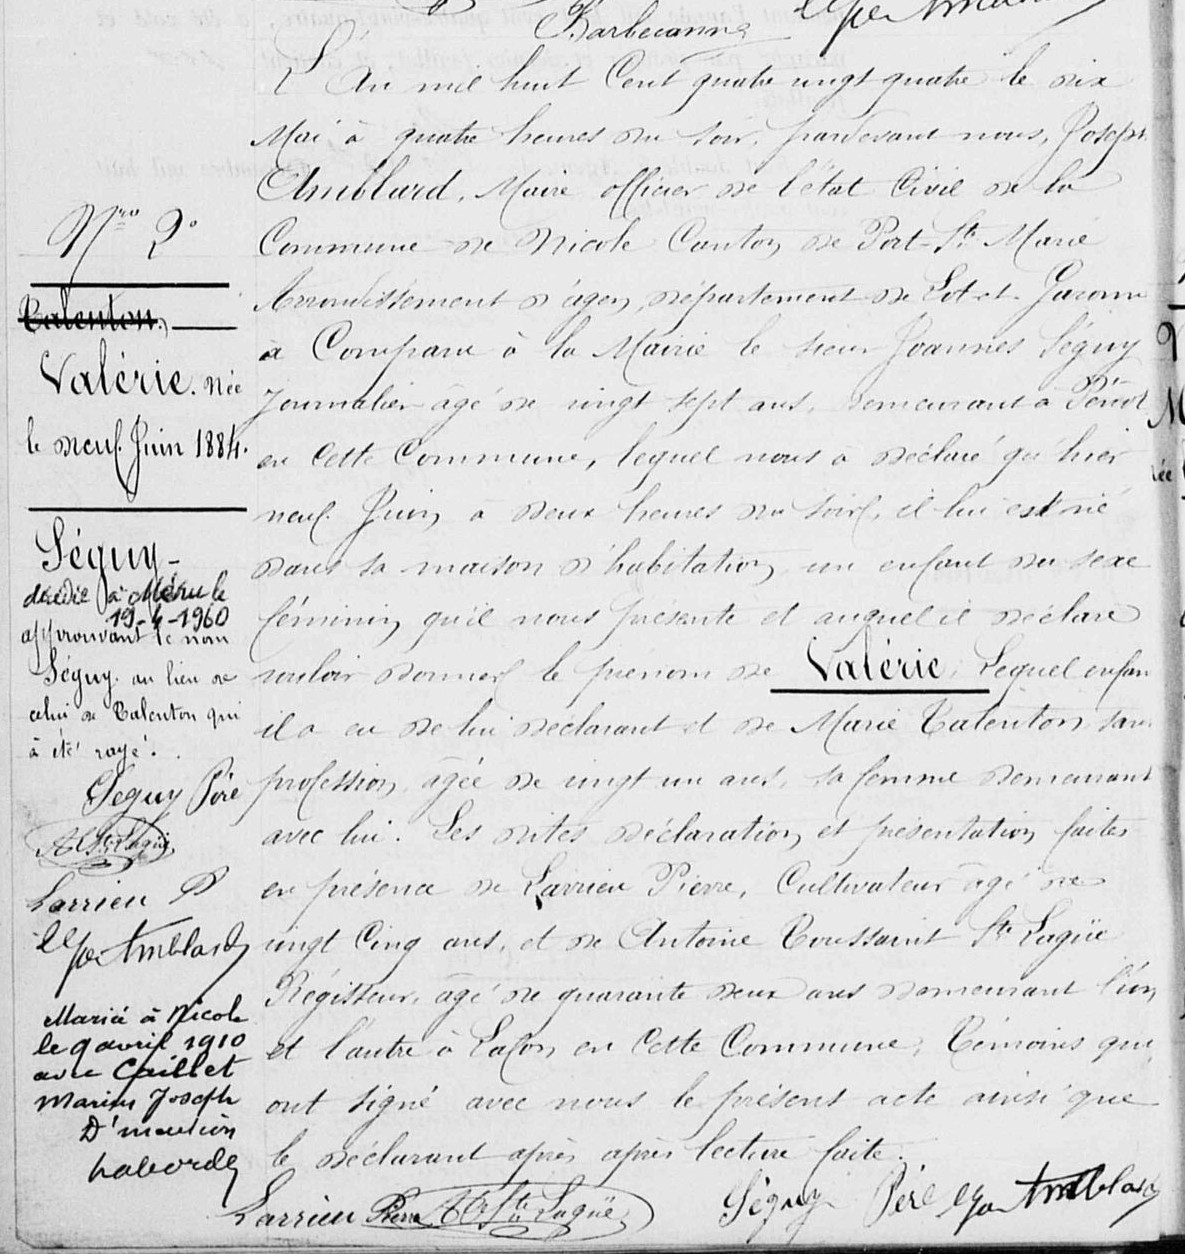 Barbecanne
L'An mil huit Cent quatre vingt quatre le dix
Mai à quatre heures du soir, pardevant nous, Joseph
Amblard, Maire officier de l'état Civil de la
Commune de Nicole Canton de Port-Ste Marie
Arrondissement d'agen, département de Lot-et-Garonne
a Comparu à la Mairie le sieur Joannès Séguy
Journalier âgé de vingt sept ans, demeurant à
en Cette Commune, lequel nous a déclaré qu'hier
neuf Juin à deux heures du soir, il lui est né
dans sa maison d'habitation un enfant du sexe
féminin qu'il nous présente et auquel il déclare
vouloir donner le prénom de Valérie. Lequel enfan
il a eu de lui déclarant et de Marie Talenton, san
profession, âgée de vingt un ans, sa femme demeurant
avec lui. Les dites déclaration et présentation faites
en présence de Larrieu Pierre, Cultivateur âgé de
vingt Cinq ans, et de Antoine Toussaint Ste Lagüe
Régisseur, âgé de quarante deux ans demeurant l'un
et l'autre à Lafon en Cette Commune, Témoins qui
ont signé avec nous le présent acte ainsi que
le déclarant après après lecture faite.
Larrieu Pierre Ste Lagüe Séguy Père Amblard
Nro 2º
Talenton
Valérie. Née
le neuf Juin 1884.
Séguy-
décédée à Méru le
19-4-1960
approuvant le nom
Séguy au lieu de
celui de Talenton qui
à été rayé.
Séguy Père
Ste Lagüe
Larrieu P
Amblard
Marié à Nicole
le 9 avril 1910
avec Caillet
Marius Joseph
D'
Laborde